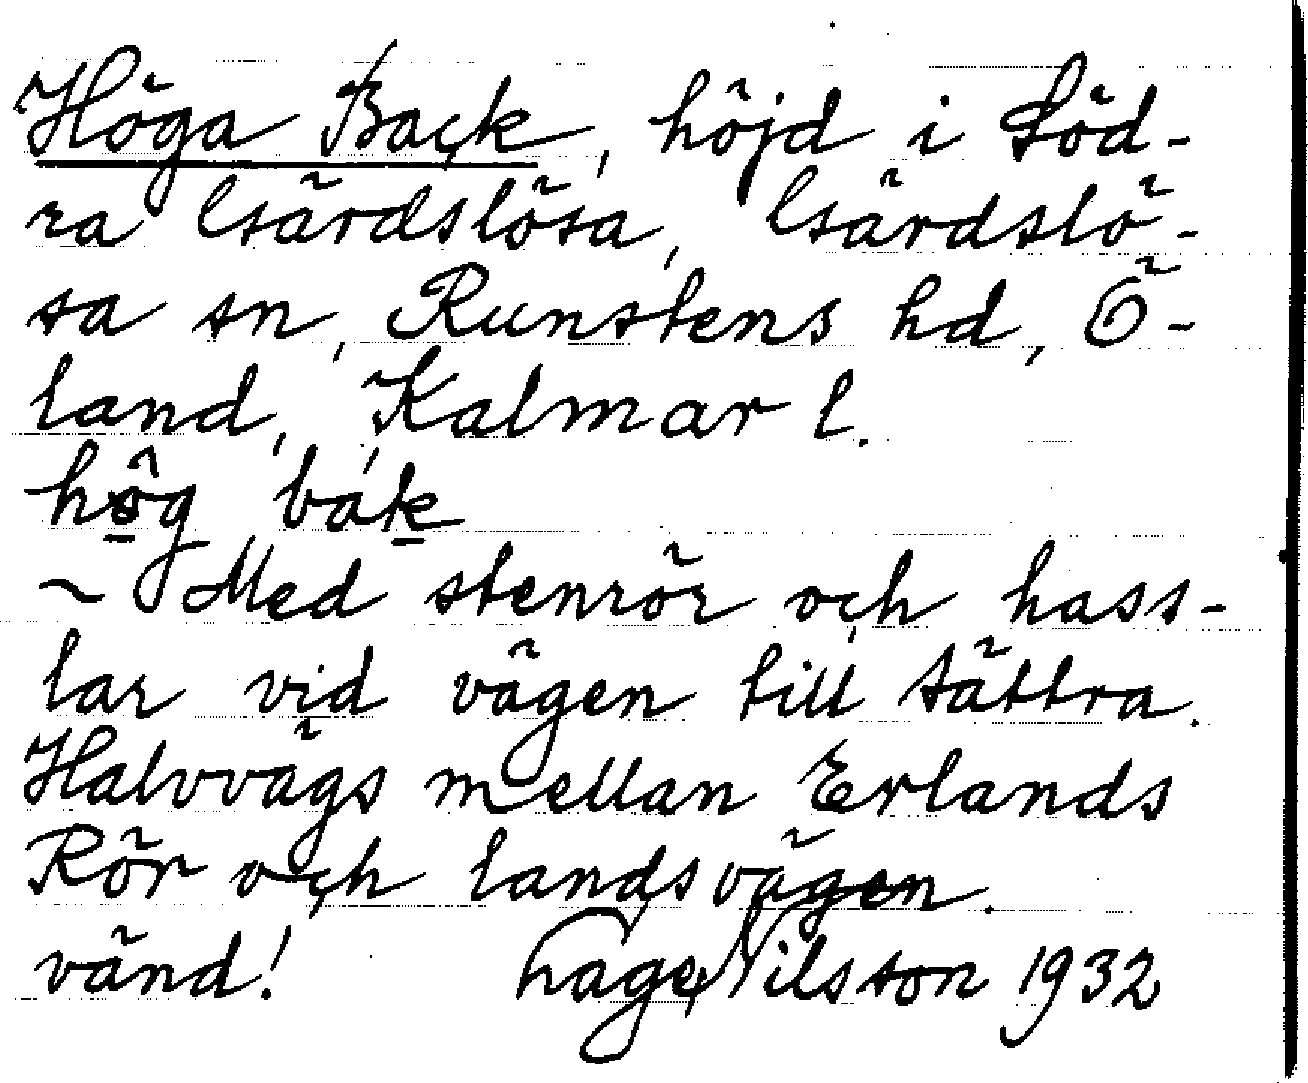 Höga Back, höjd i Söd-
ra Gärdslösa, Gärdslö-
sa sn, Runstens hd, Ö-
land, Kalmar l.
hôg bak
~ Med stenrör och hass-
lar vid vägen till Sättra.
Halvvägs mellan Erlands
Rör och landsvägen.
vänd! Hage Nilsson 1932